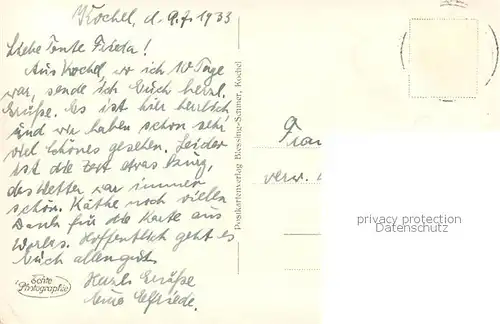 Kochel, d. 9.7.1933
Liebe Tante Frieda!
Aus Kochel, wo ich 10 Tage
war, sende ich Euch herzl.
Grüße. Es ist hier herrlich
und wir haben schon sehr
viel Schönes gesehen. Leider
ist die Zeit etwas kurz,
das Wetter war immer
schön. Käthe noch vielen
Dank für die Karte aus
Worbis. Hoffentlich geht es
Euch allen gut.
Herzl. Grüße
Elfriede.
Echte
Photographie
Postkartenverlag Blessing-Sanner, Kochel
Frau
verw.
privacy protection
Datenschutz